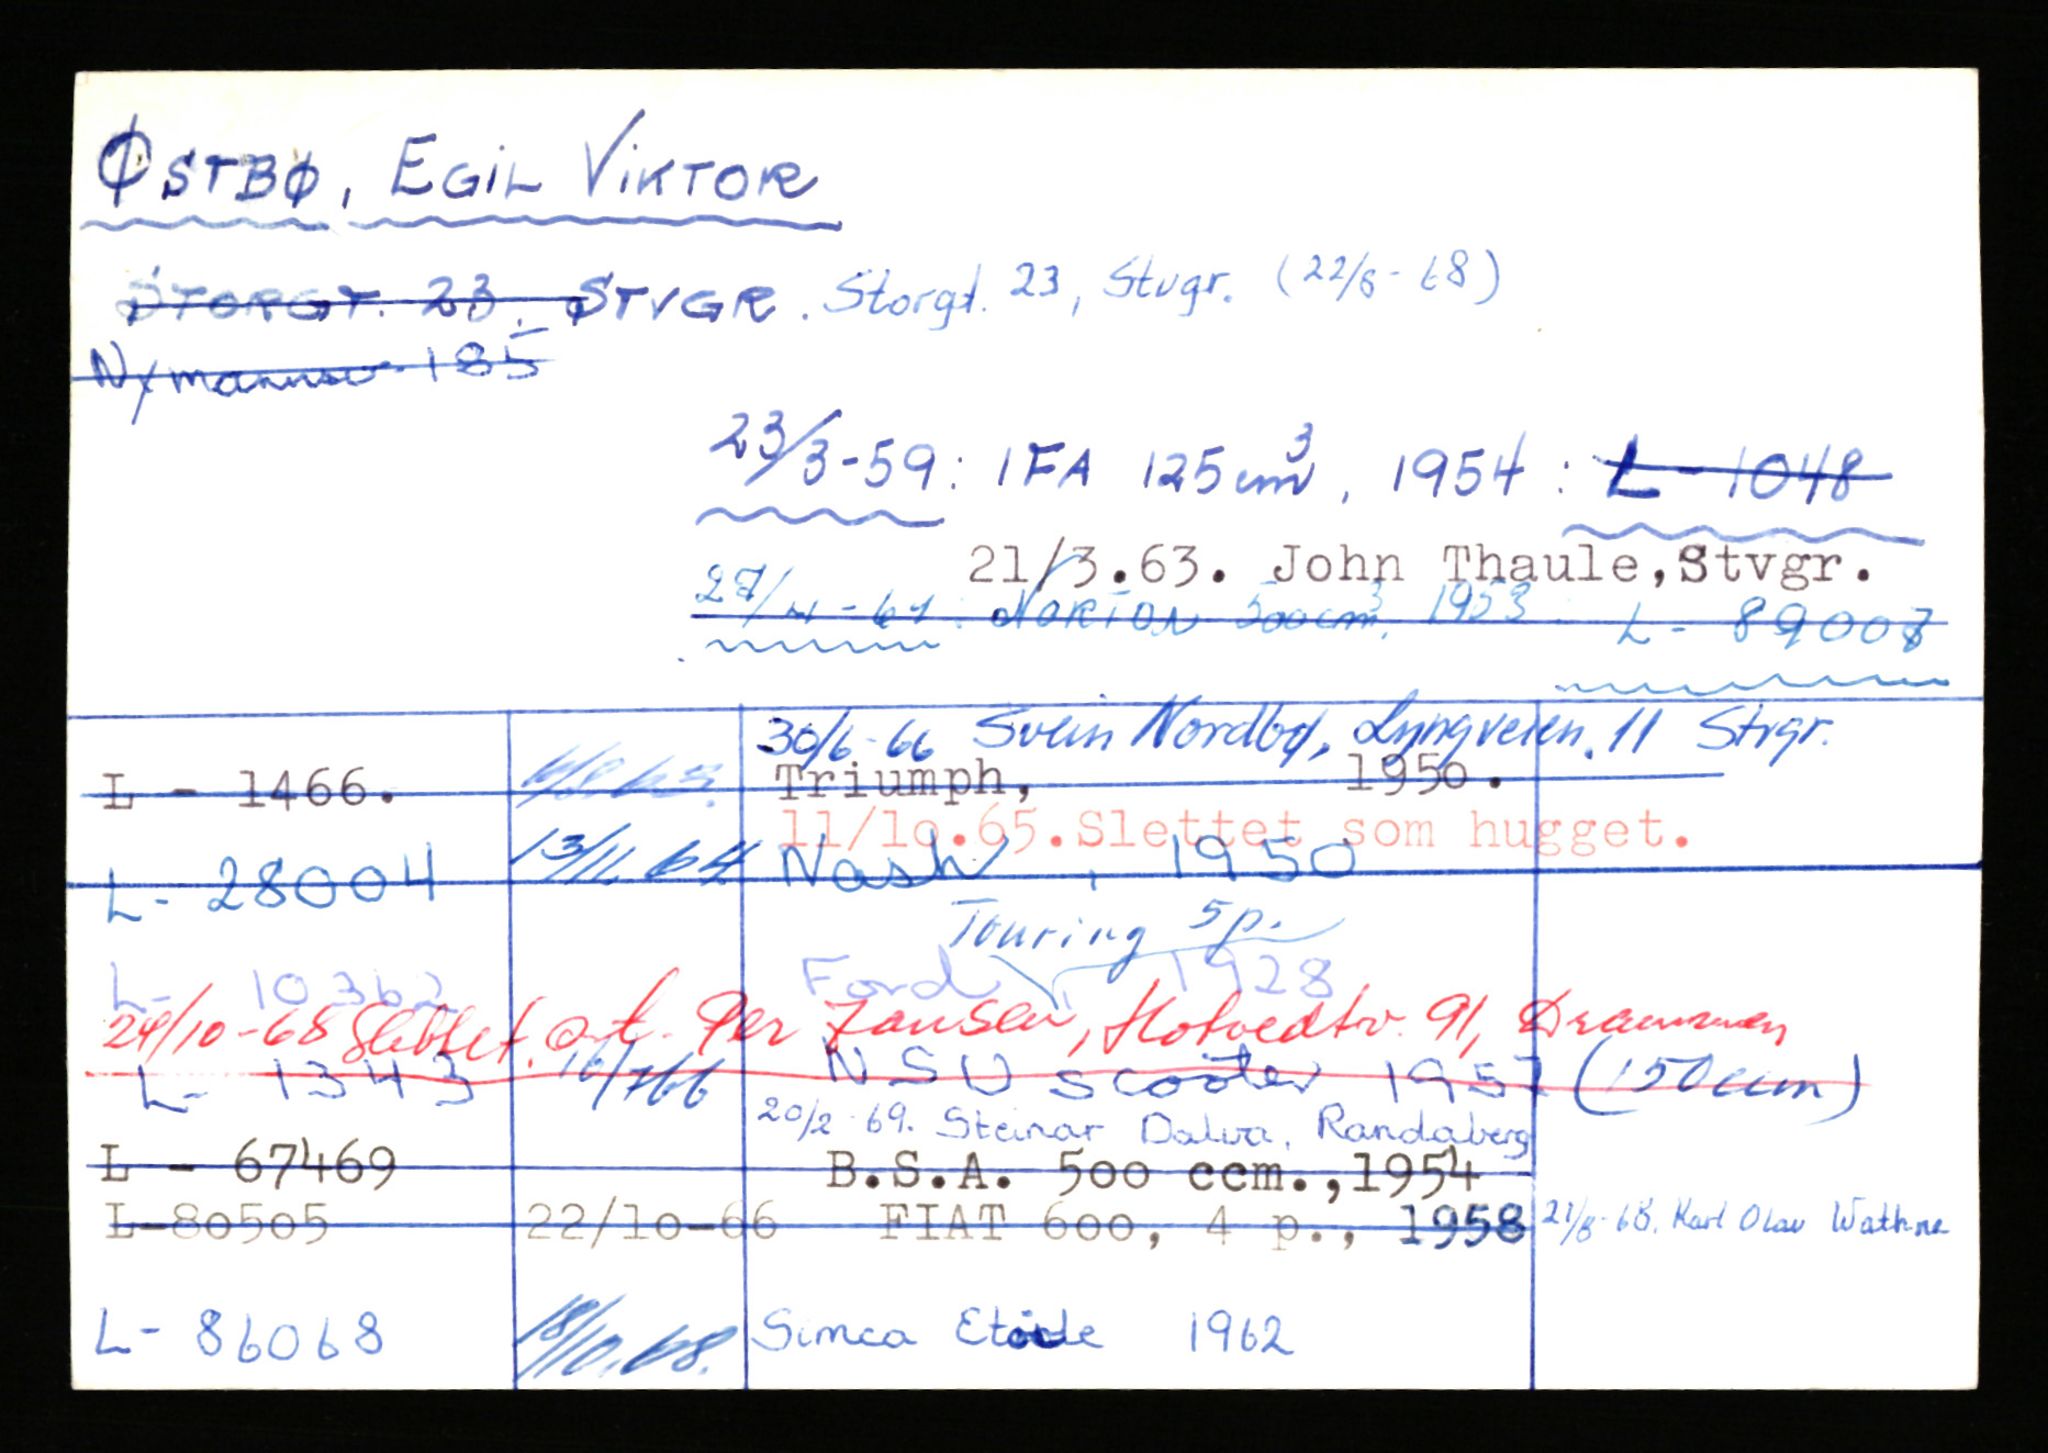 ØSTBØ, EGIL VIKTOR
STORGT. 23. STVGR. Storgt. 23, Stvgr. (22/8-68)
Nymannsv. 185
23/3-59: IFA 125 cm³, 1954: L-1048
21/3.63. John Thaule,Stvgr.
Norton 500 cm³, 1953 L-89007
30/6-66 Svein Nordbø, Lyngveien 11 Stvgr.
L - 1466. Triumph, 1950.
11/10.65.Slettet som hugget.
L- 28004 13/11.64 Nash, 1950
Touring 5p.
L- 10362 Ford 1928
24/10-68 Slettet o.t. Per Jansen, Hotvedtv. 91, Drammen
L- 1343 16/7 66 NSU scooter 1957 (150 ccm)
20/2-69. Steinar Dalva, Randaberg
L - 67469 B.S.A. 500 ccm.,1954
L-80505 22/10-66 FIAT 600, 4 p., 1958 21/8-68. Karl Olav Wathne
L- 86068 18/10.68. Simca Etoile 1962